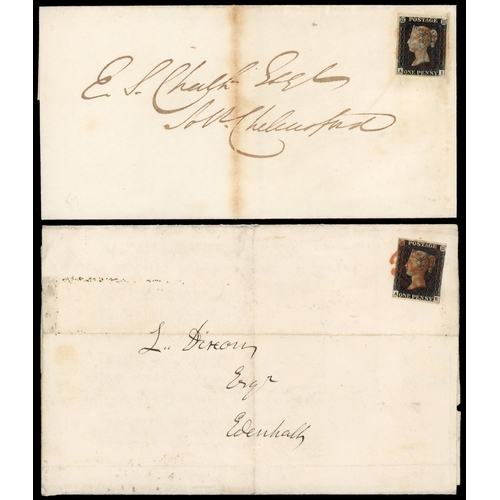 POSTAGE
A
ONE PENNY
E. S. Esqr
Chelmsford
POSTAGE
A
ONE PENNY
L. Dixon,
Esqr
Edenhall